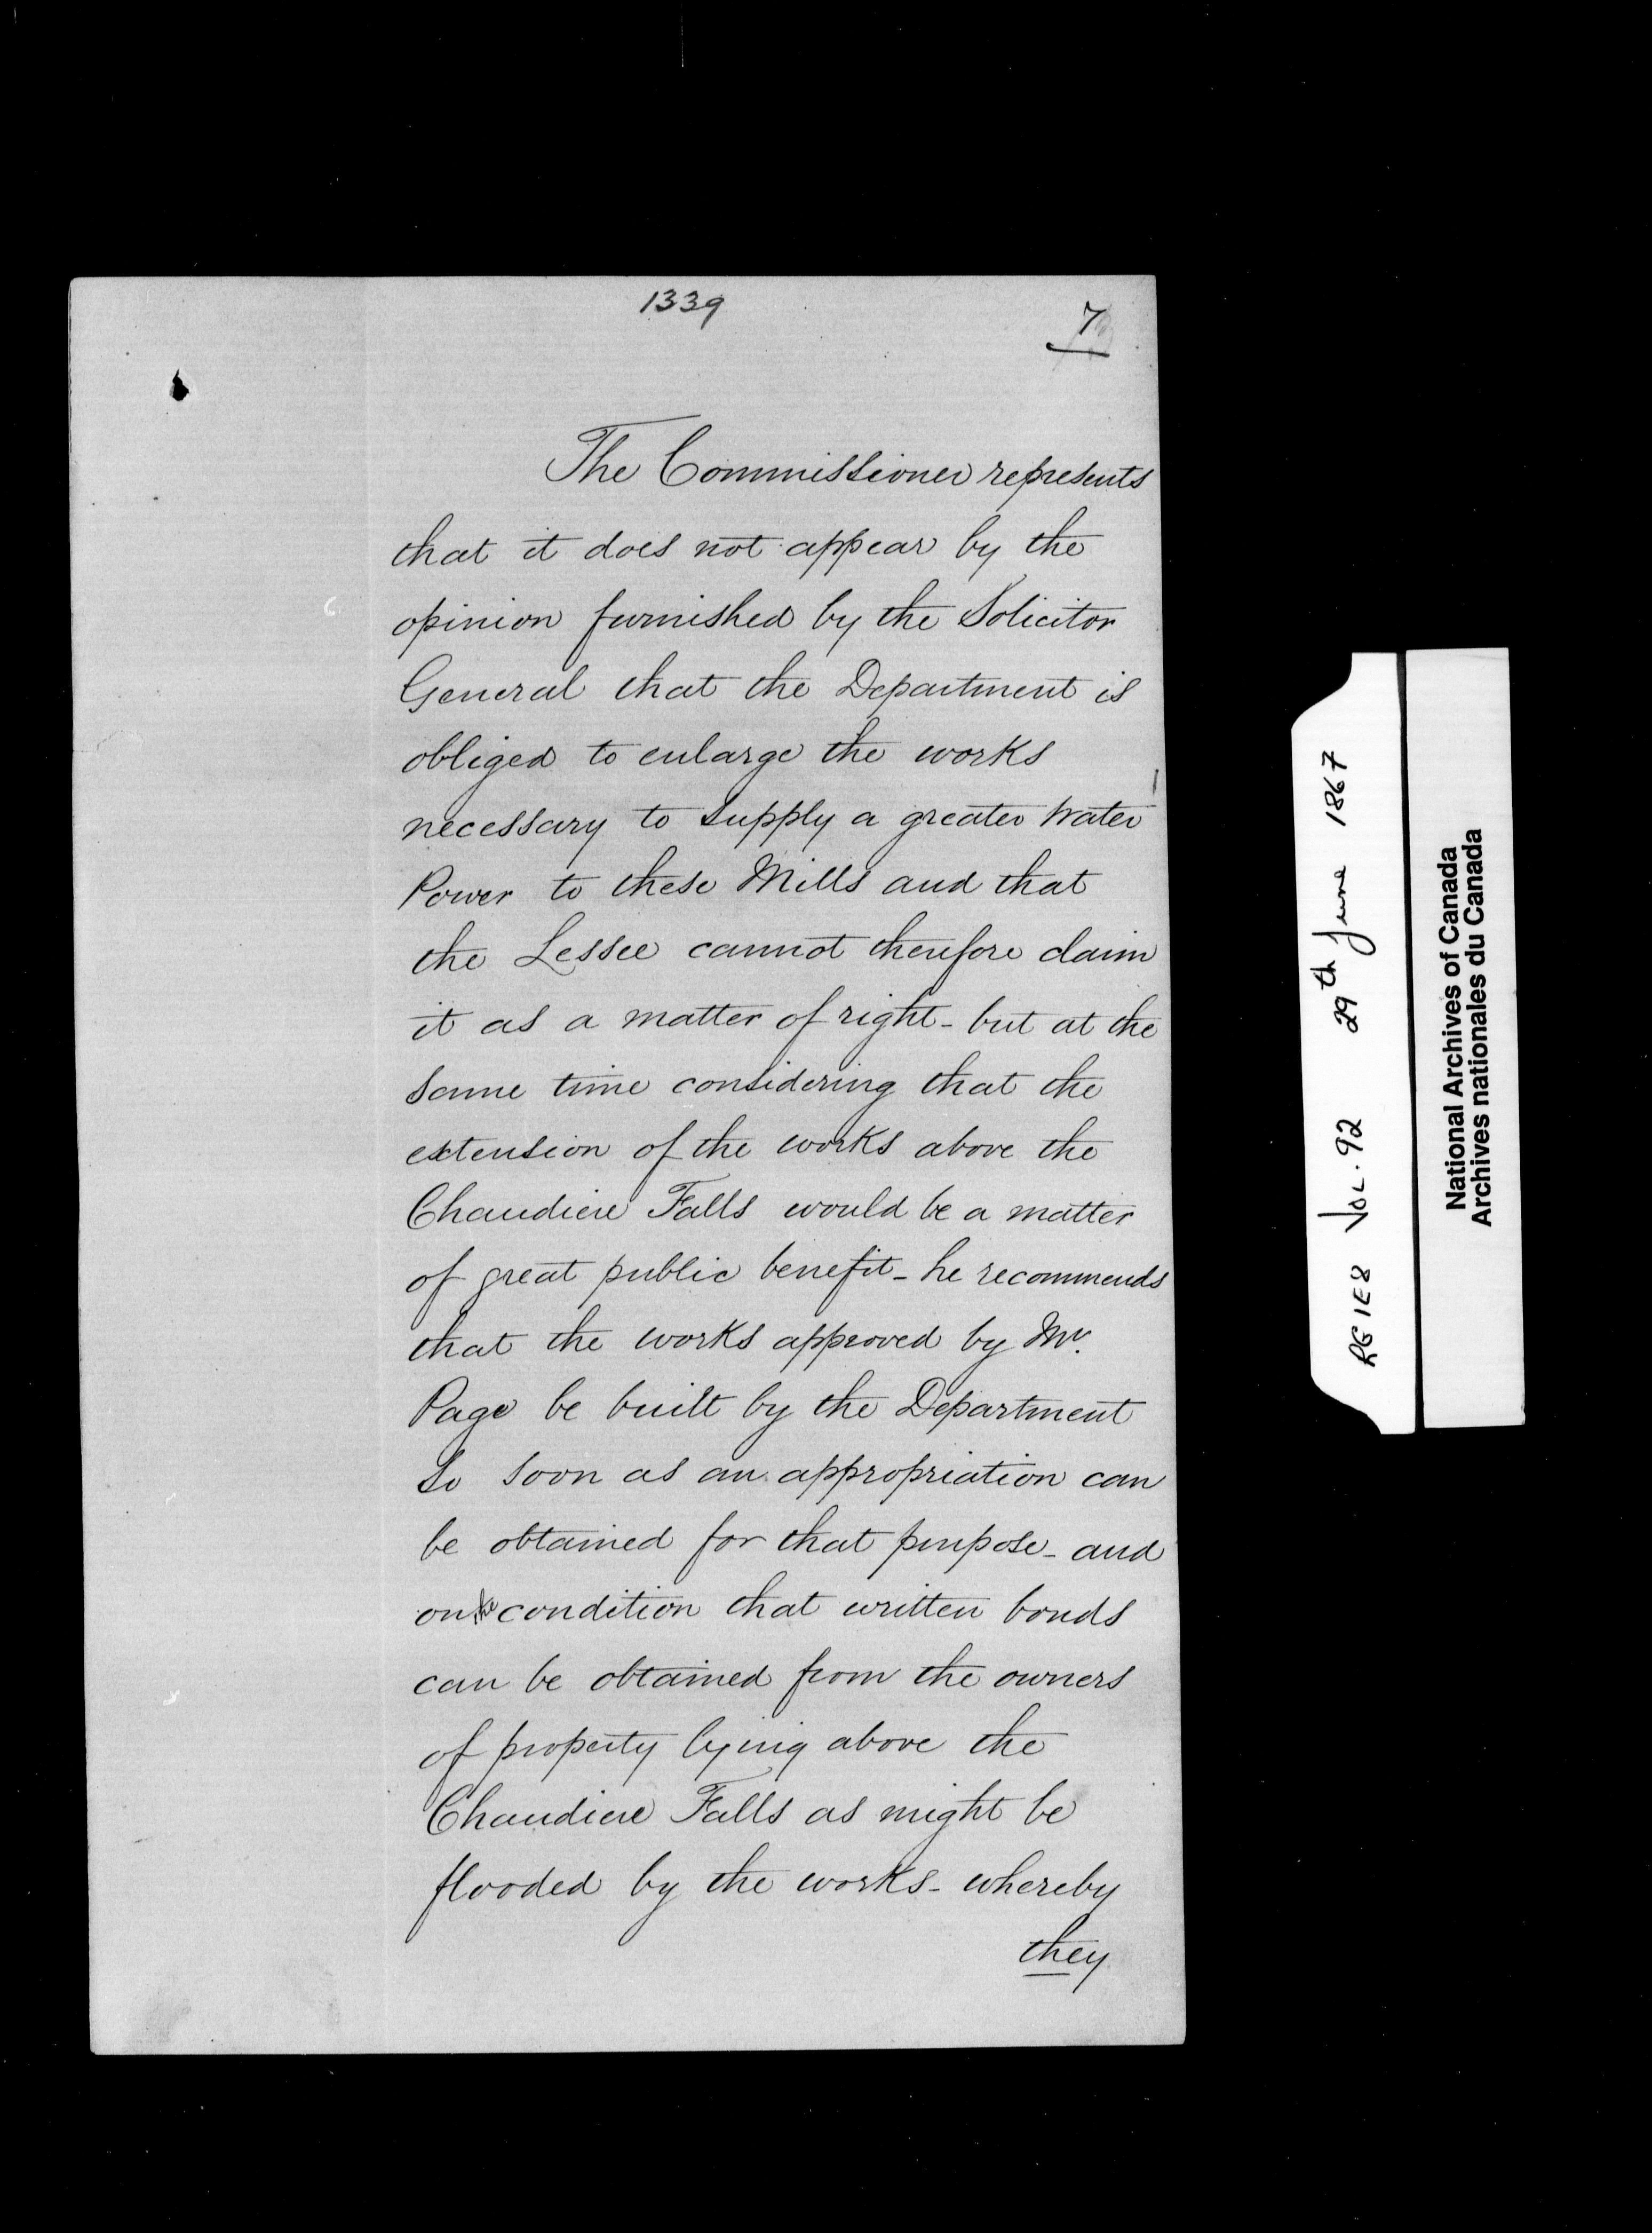 1339
7
The Commissioner represents
that it does not appear by the
opinion furnished by the Solicitor
General that the Department is
obliged to enlarge the works
necessary to supply a greater Water
Power to these Mills and that
the Lessee cannot therefore claim
it as a matter of right - but at the
same time considering that the
extension of the works above the
Chaudiere Falls would be a matter
of great public benefit - he recommends
that the works approved by Mr.
Page be built by the Department
so soon as an appropriation can
be obtained for that purpose - and
on the condition that written bonds
can be obtained from the owners
of property lying above the
Chaudiere Falls as might be
flooded by the works - whereby
they
RG 1 E8 VOL. 92 29th June 1867
National Archives of Canada
Archives nationales du Canada